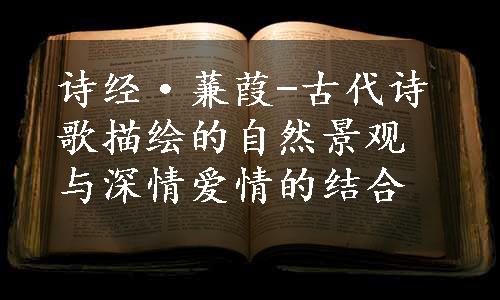 诗经·蒹葭-古代诗
歌描绘的自然景观
与深情爱情的结合